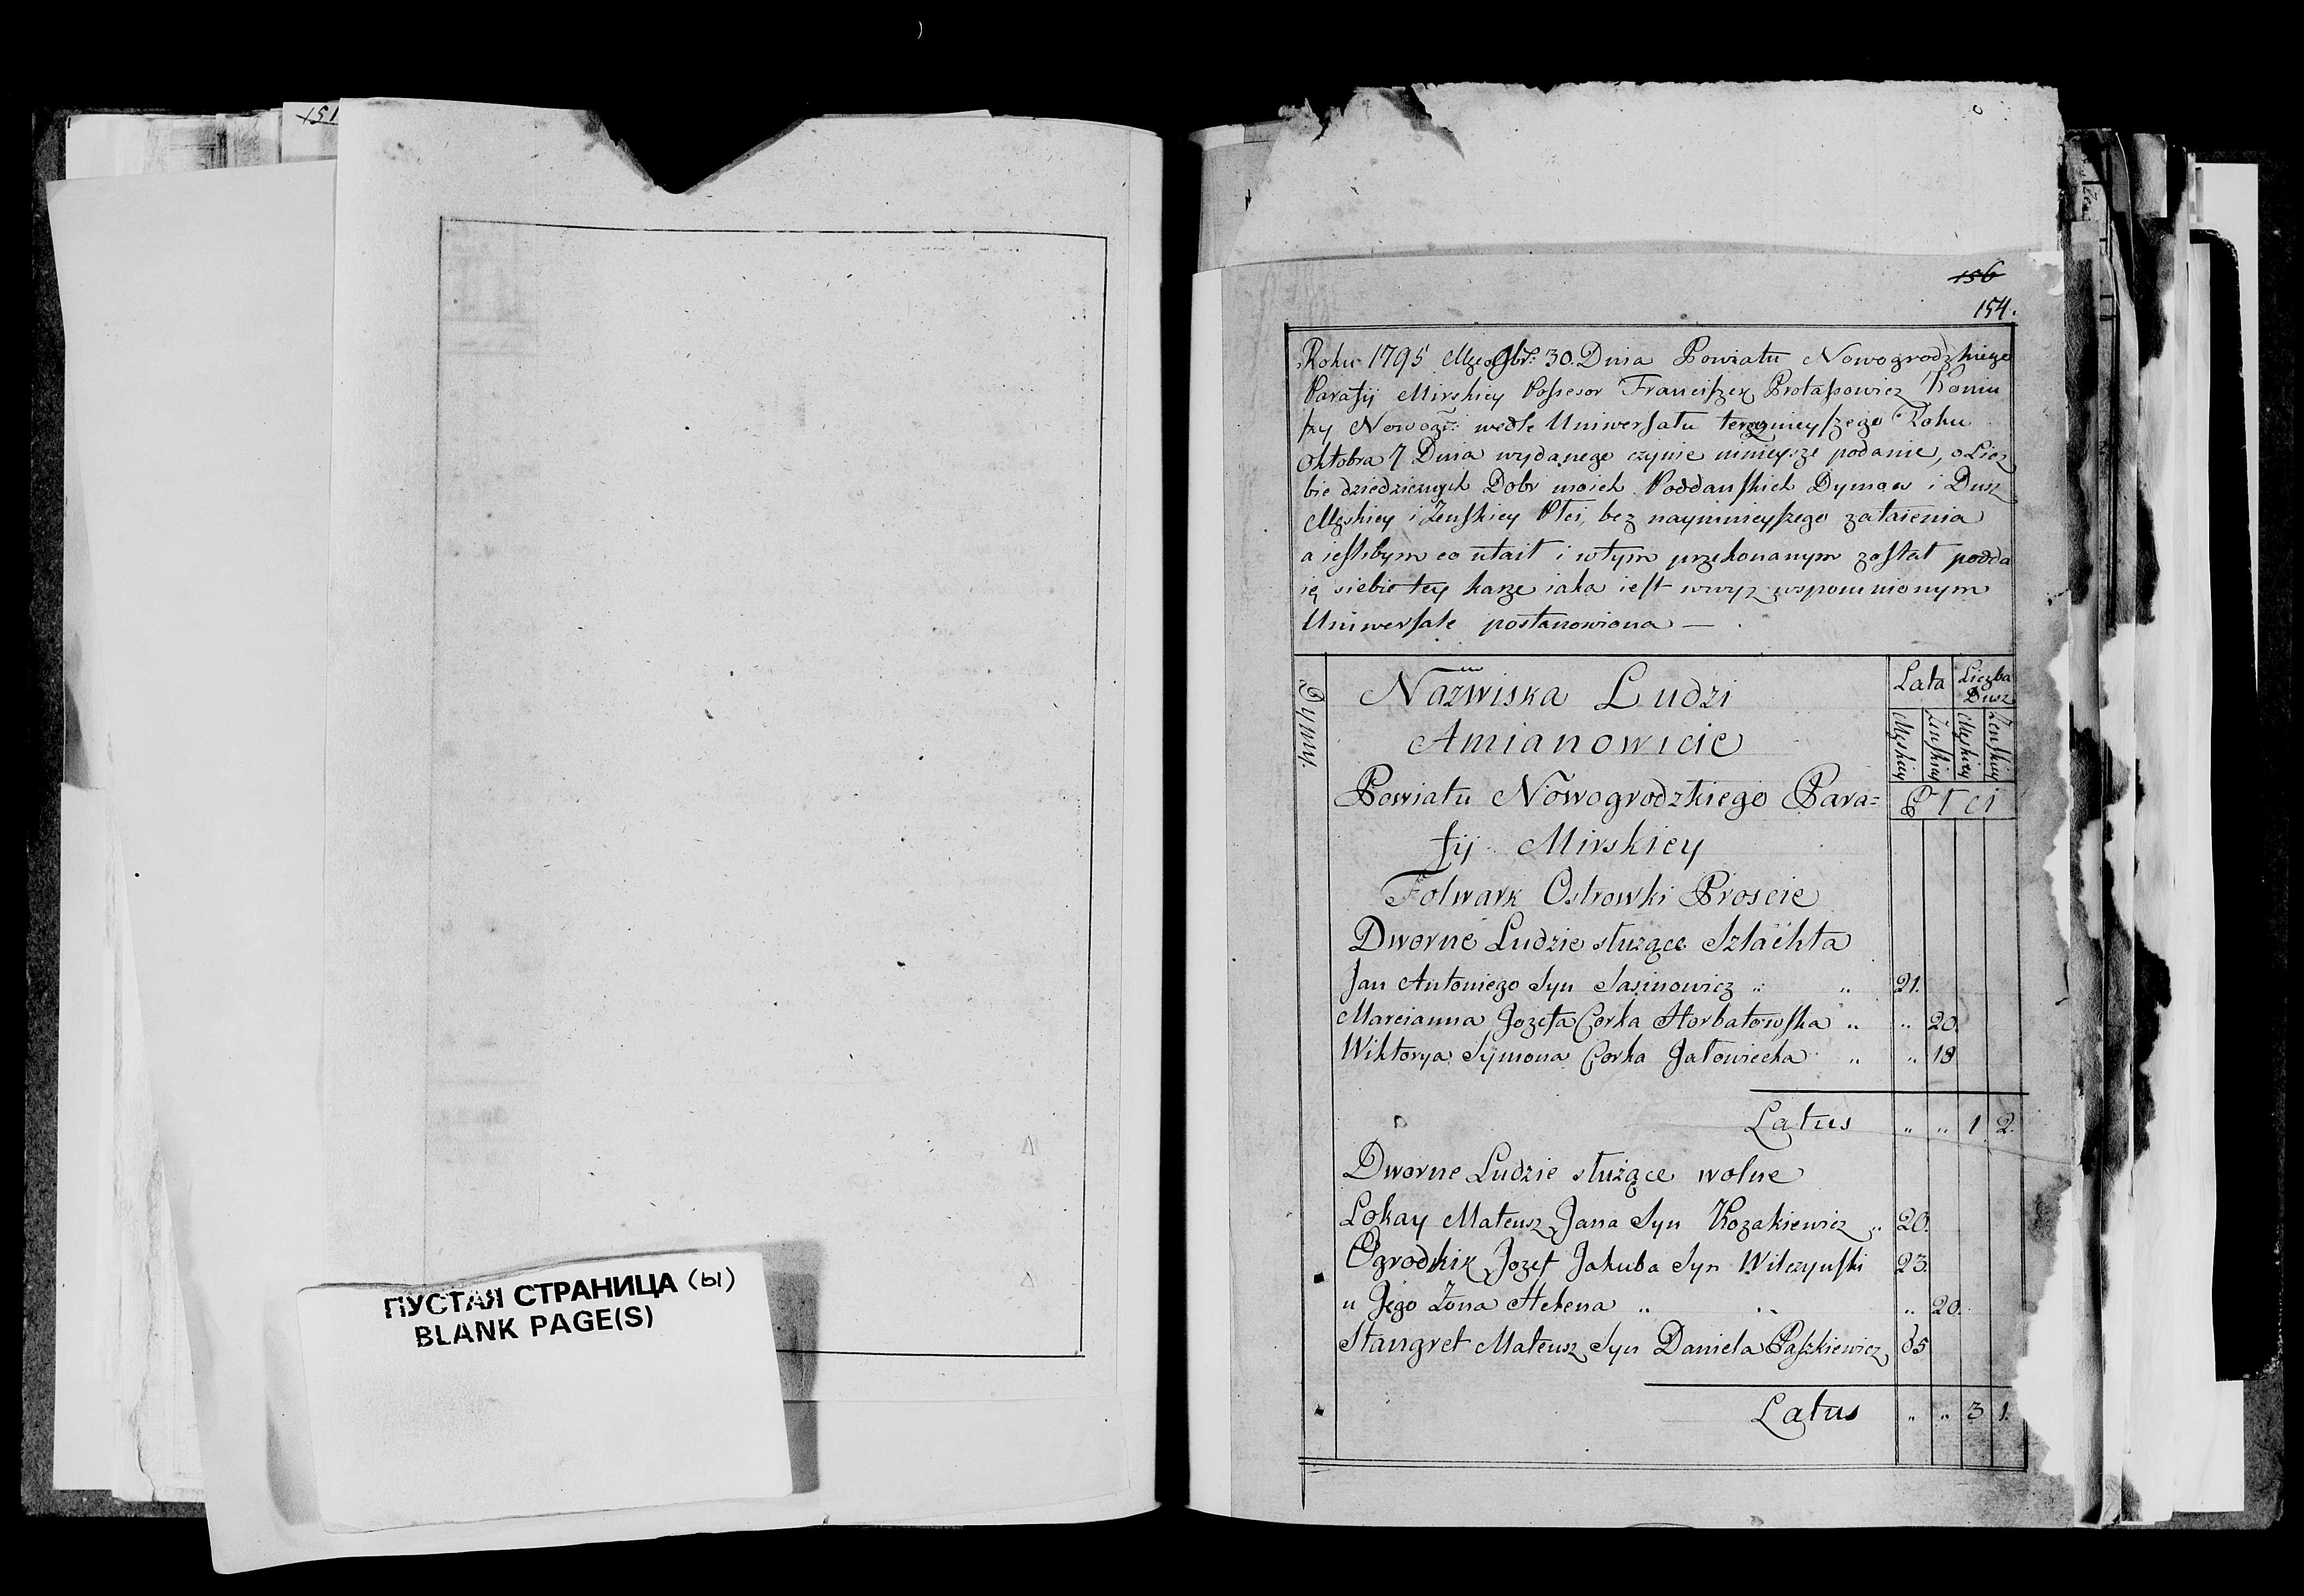 151
ПУСТАЯ СТРАНИЦА (Ы)
BLANK PAGE(S)
156
154.
Roku 1795 Mca 9br: 30. Dnia Powiatu Nowogrodzkiego
Parafij Mirskiey Possesor Franciszek Protassowicz Koniu
szy Nowogr: wedle Uniwersału teraznieyszego Roku
Oktobra 7 Dnia wydanego czynie ninieysze podanie, o Licz
bie dziedzicznych Dobr moich Poddanskich Dymow i Dusz
Męskiey i Zenskiey Płci, bez naymnieyszego zataienia
a iesliбym co utaił i wtym przekonanym został podda
ię siebie tey karze iaka iest wwyz wspomnionym
Uniwersale postanowiona —
Dymy.
Nazwiska Ludzi
Lata
Liczba Dusz
Męskiey
Zenskiey
Męskiey
Zenskiey
Płci
Amianowicie
Powiatu Nowogrodzkiego Para=
fij Mirskiey
Folwark Ostrowki Proscie
Dworne Ludzie służące Szlachta
Jan Antoniego Syn Sasinowicz " " 21.
Marcianna Jozefa Corka Horbatowska " " 20.
Wiktorya Symona Corka Jałowiecka " " 18
Latus " " 1 2.
Dworne Ludzie służące wolne
Lokay Mateusz Jana Syn Kozakiewicz " 20.
Ogrodnik Jozef Jakuba Syn Wilczynski 23.
u Jego Zona Helena " " " 20.
Stangret Mateusz Syn Daniela Paszkiewicz 35
Latus " " 3 1.